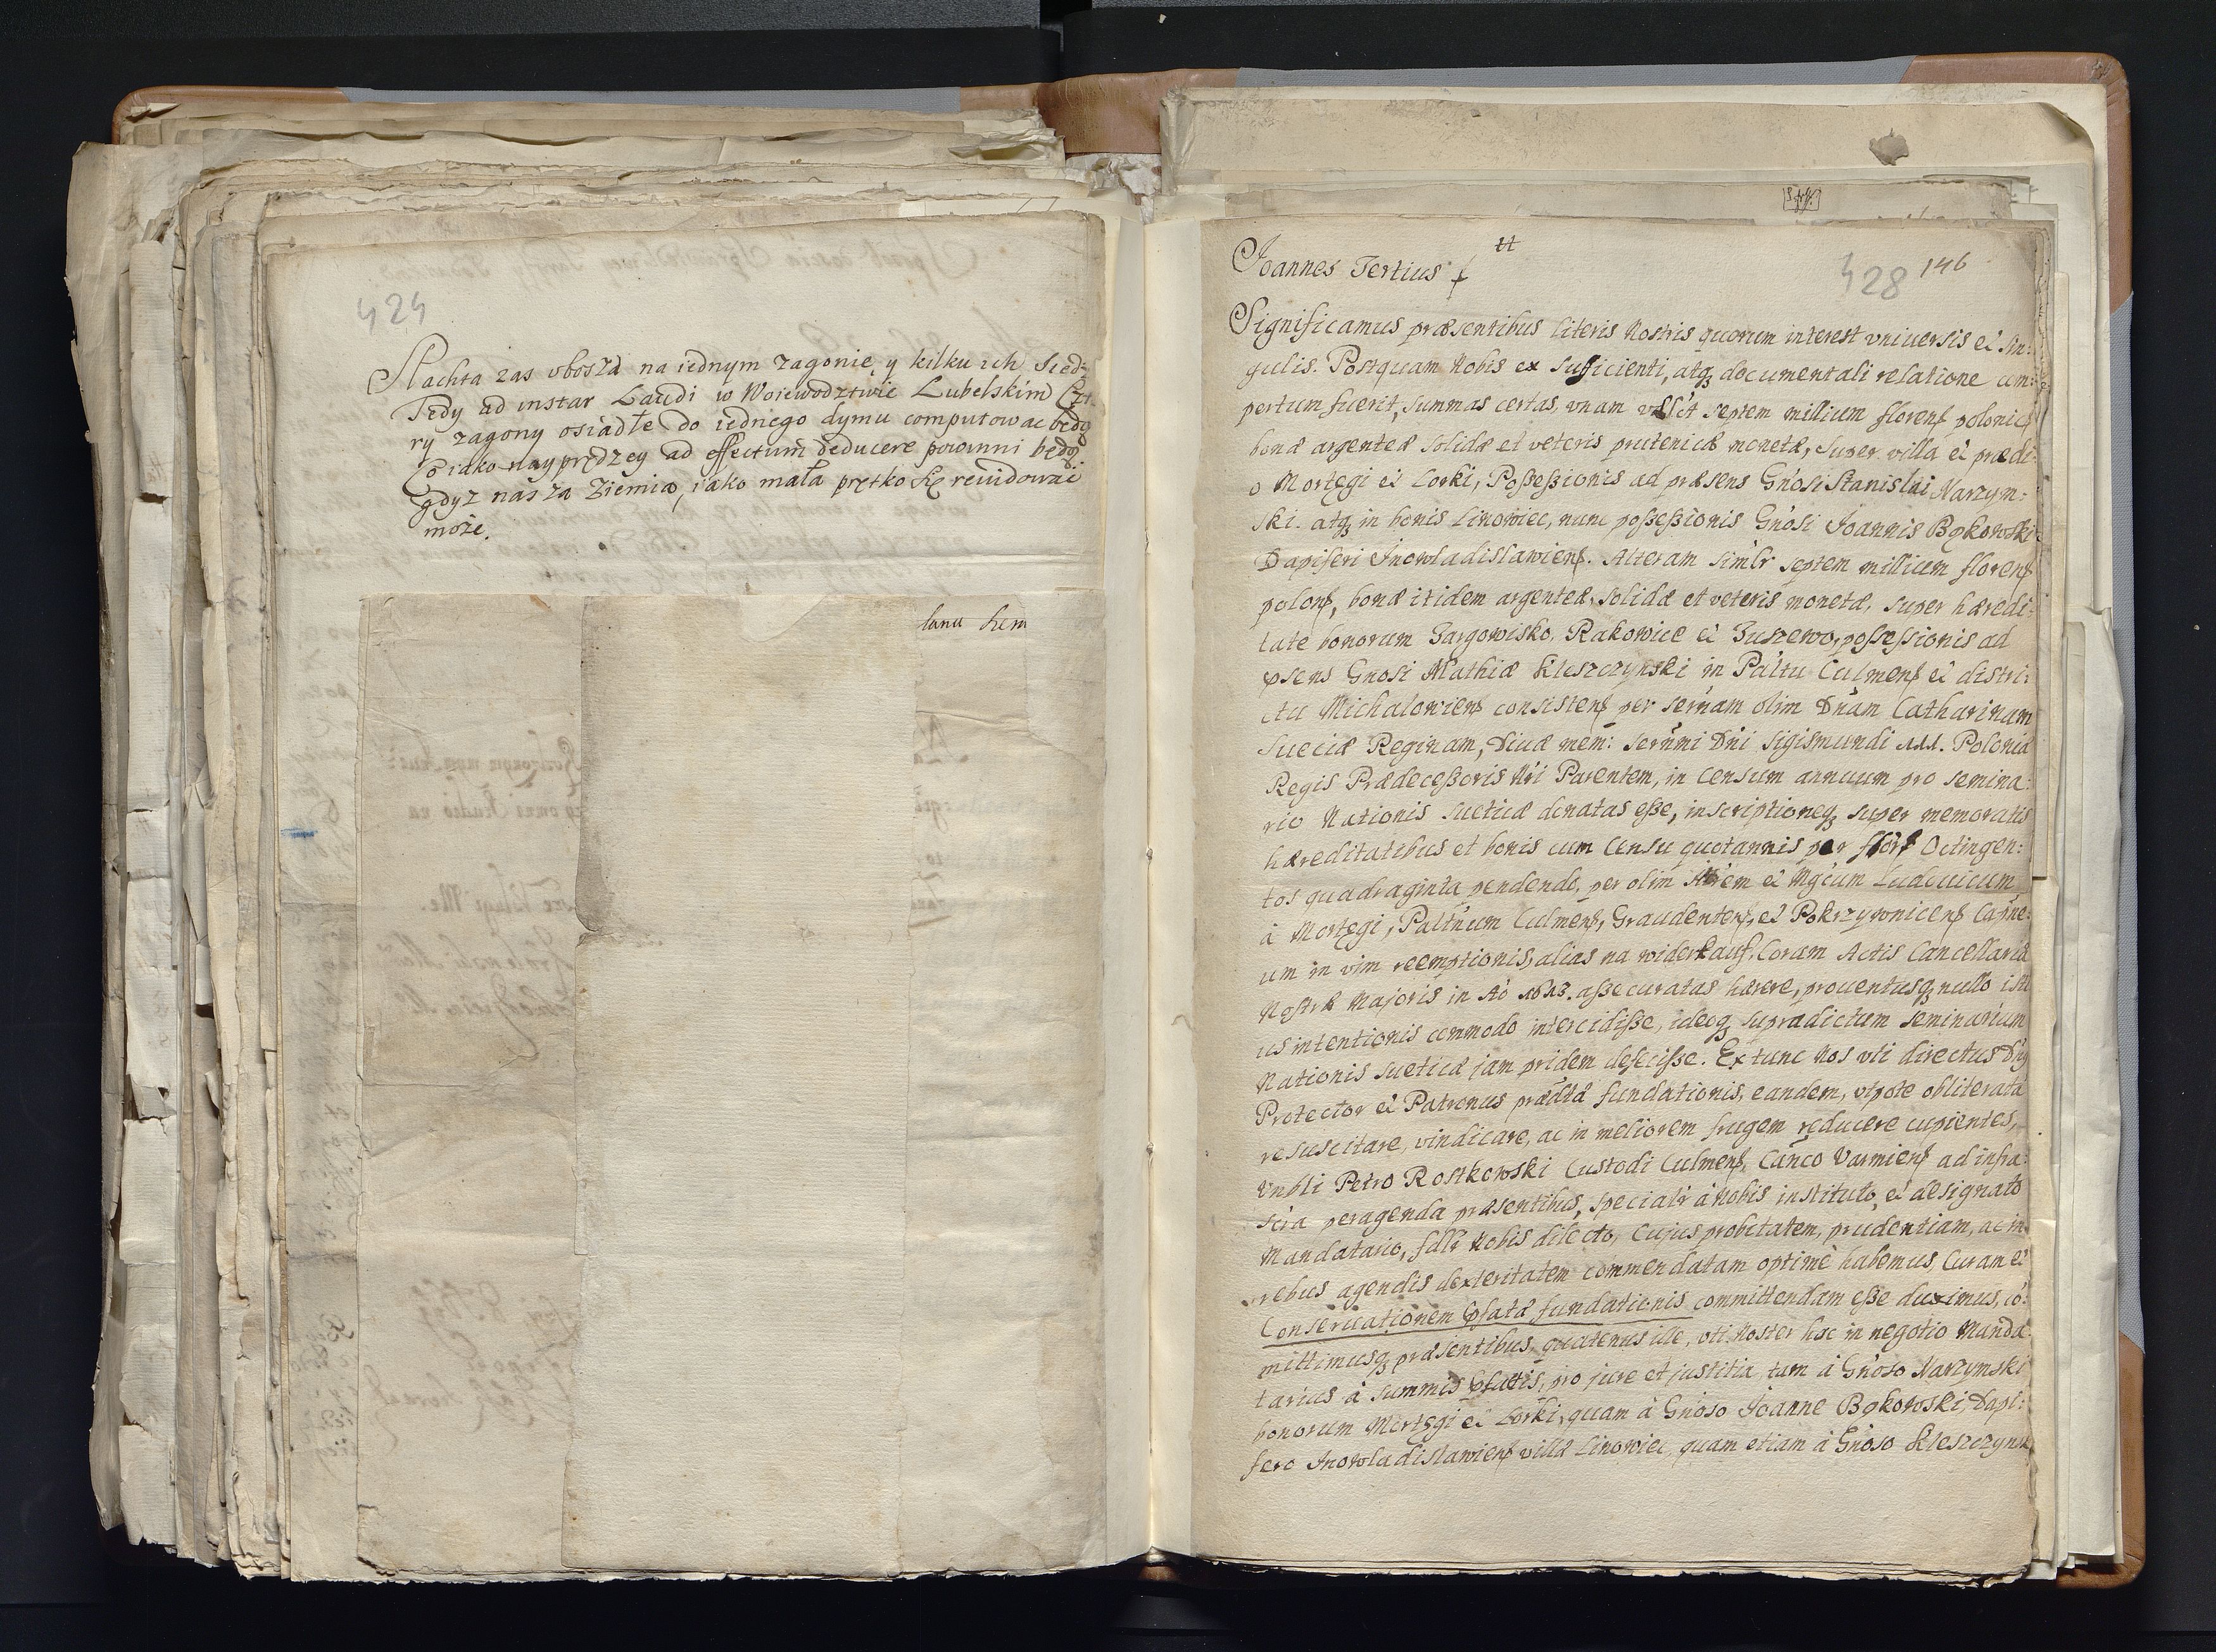 424
Slachta zas vboszá na iednym zagonie, y kilku ich siedzi
Tedy ad instar Laudi w Woiewodztwie Lubelskim Czt.
ry zagony osiadłe do iednego dymu computowac będą
Co iako nayprędzey ad effectum deducere powinni będą
gdyz nasza Ziemia, iako mała prętko się rewidowac
może.
428 146
Joannes Tertius
Significamus præsentibus literis Nostris quorum interest vniuersis et sin:
gulis. Postquam Nobis ex sufficienti, atq; documentali relatione com:
pertum fuerit, summas certas, vnam vsłt septem millium florens polonic
bonæ argenteæ solidæ et veteris prutenicæ monetæ, super villa et prædi:
o Mortęgi et Lorki, Possessionis ad præsens Gnosi Stanislai Narzym:
ski. atq; in bonis Linowiec, nunc possessionis Gnosi Joannis Bąkowski
Dapiferi Inowladislawiens. Alteram simlr septem millium florens
polons, bonæ itidem argenteæ, solidæ et veteris monetæ, super hæredi:
tate bonorum Targowisko, Rakowice et Tuszewo, possessionis ad
psens Gnosi Mathiæ Kleszczynski in Paltu Culmens et distri:
ctu Michalowiens consistens per sernam olim Dnam Catharinam
Sueciæ Reginam, Divæ mem: sernmi Dni Sigismundi III. Poloniæ
Regis Prædecessoris Nri Parentem, in censum annuum pro semina:
rio Nationis Sueticæ donatas esse, inscriptioneq; super memoratis
hæreditatibus et bonis cum Censu quotannis per flors Octingen:
tos quadraginta pendendo, per olim Illrem et Mgcum Ludouicum
à Mortęgi, Paltnum Culmens, Graudentens, et Pokrzywnicens Capne:
um in vim reemptionis, alias na widerkauf. Coram Actis Cancellariæ
Nostræ Majoris in Ao 1613. assecuratas hærere, prouentusq; nullo isti
us intentionis commodo intercidisse, ideoq; supradictum seminarium
Nationis Sueticæ jam pridem defecisse. Ex tunc Nos vti directus Dnus
Protector et Patronus prædtæ fundationis, eandem, vtpote obliterata
resuscitare, vindicare, ac in meliorem frugem reducere cupientes,
Vnbli Petro Rostkowski Custodi Culmens, Canco Varmiens ad infra
scra peragenda præsentibus, specialr à Nobis instituto, et designato
Mandatario, fdlr Nobis dilecto, Cujus probitatem, prudentiam, ac in
rebus agendis dexteritatem commendatam optimè habemus, Curam et
Conseruationem pfatæ fundationis committendam esse duximus, co:
mittimusq; præsentibus, quatenus ille, vti Noster hoc in negotio Manda
tarius à summis pfatis, pro jure et justitia tam à Gnoso Narzymski
bonorum Mortęgi et Lorki, quam à Gnoso Joanne Bąkowski, Dapi:
fero Inowladislawiens villæ Linowiec, quam etiam à Gnoso Kleszczynsk